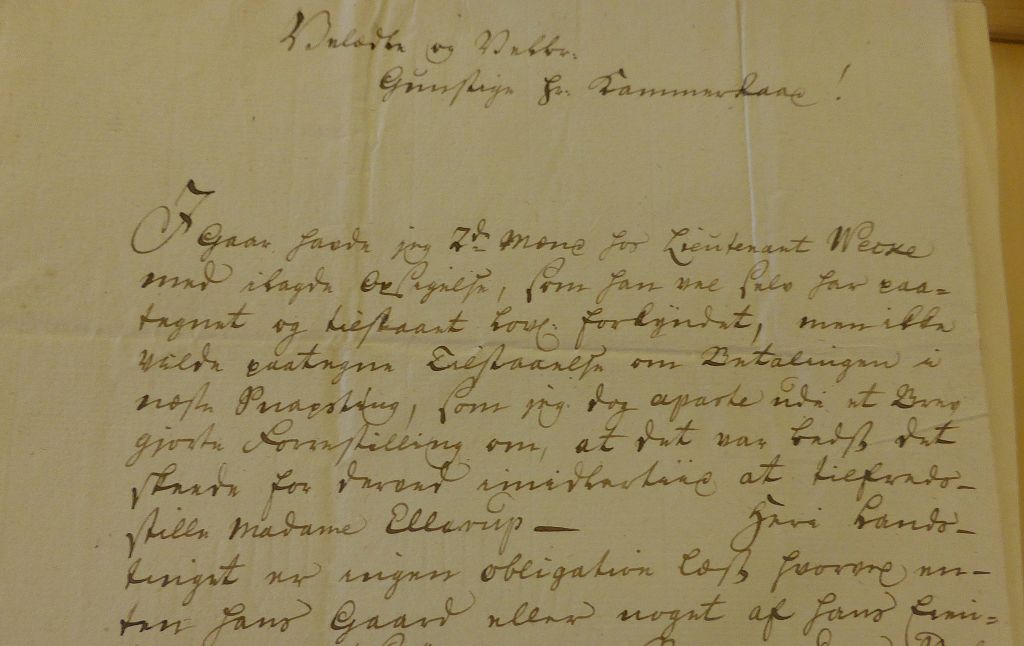 Velædle og Velbr:
Gunstige Hr: Kammerraad!
I Gaar havde jeg 2de Mænd hos Lieutenant Wecke
med ilagde Opsigelse, som han vel selv har paa=
tegnet og tilstaaet lovl: forkyndet, men ikke
vilde paategne Tilstaaelse om Betalingen i
næste Snapsting, som jeg dog aparte udi et Brev
gjorte Forrestilling om, at det var bedst det
skeede for derved imidlertiid at tilfreds-
stille Madame Ellerup —  Heri Lands-
tinget er ingen obligation læst hvorved en-
ten hans Gaard eller noget af hans